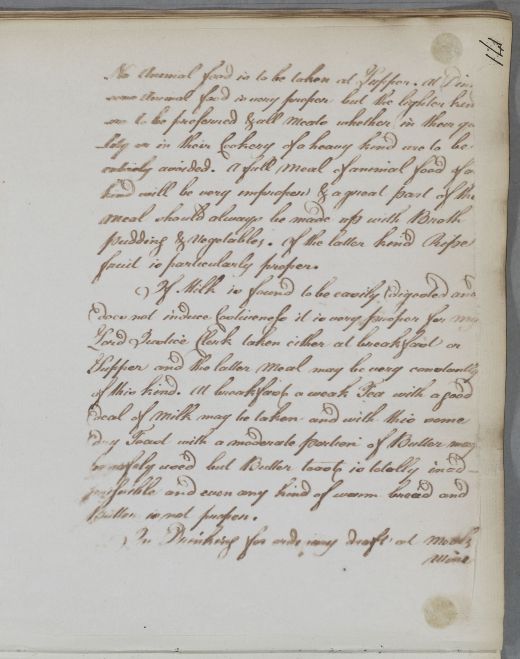 141
No Animal food is to be taken at Supper. At Din-
some Animal food is very proper but the lighter kin
are to be preferred & all meats whether in their qu
lity or in their Cookery of a heavy kind are to be
entirely avoided. A full Meal of animal food of a
kind will be very improper & a great part of the
Meal should always be made up with Broth
pudding & vegetables. Of the latter kind
is particularly proper.
If Milk is found to be easily digested and
does not induce Costiveness it is very proper for my
Lord Justice Clerk taken either at breakfast or
Supper and the latter Meal may be very constantly
of this kind. At breakfast a weak Tea with a good
deal of Milk may be taken and with this some
dry Toast with a moderate portion of Butter may
be safely used but Butter toast is totally inad-
missible and even any kind of warm bread and
Butter is not proper.
In Drinking for ordinary draft at Meals
Wine